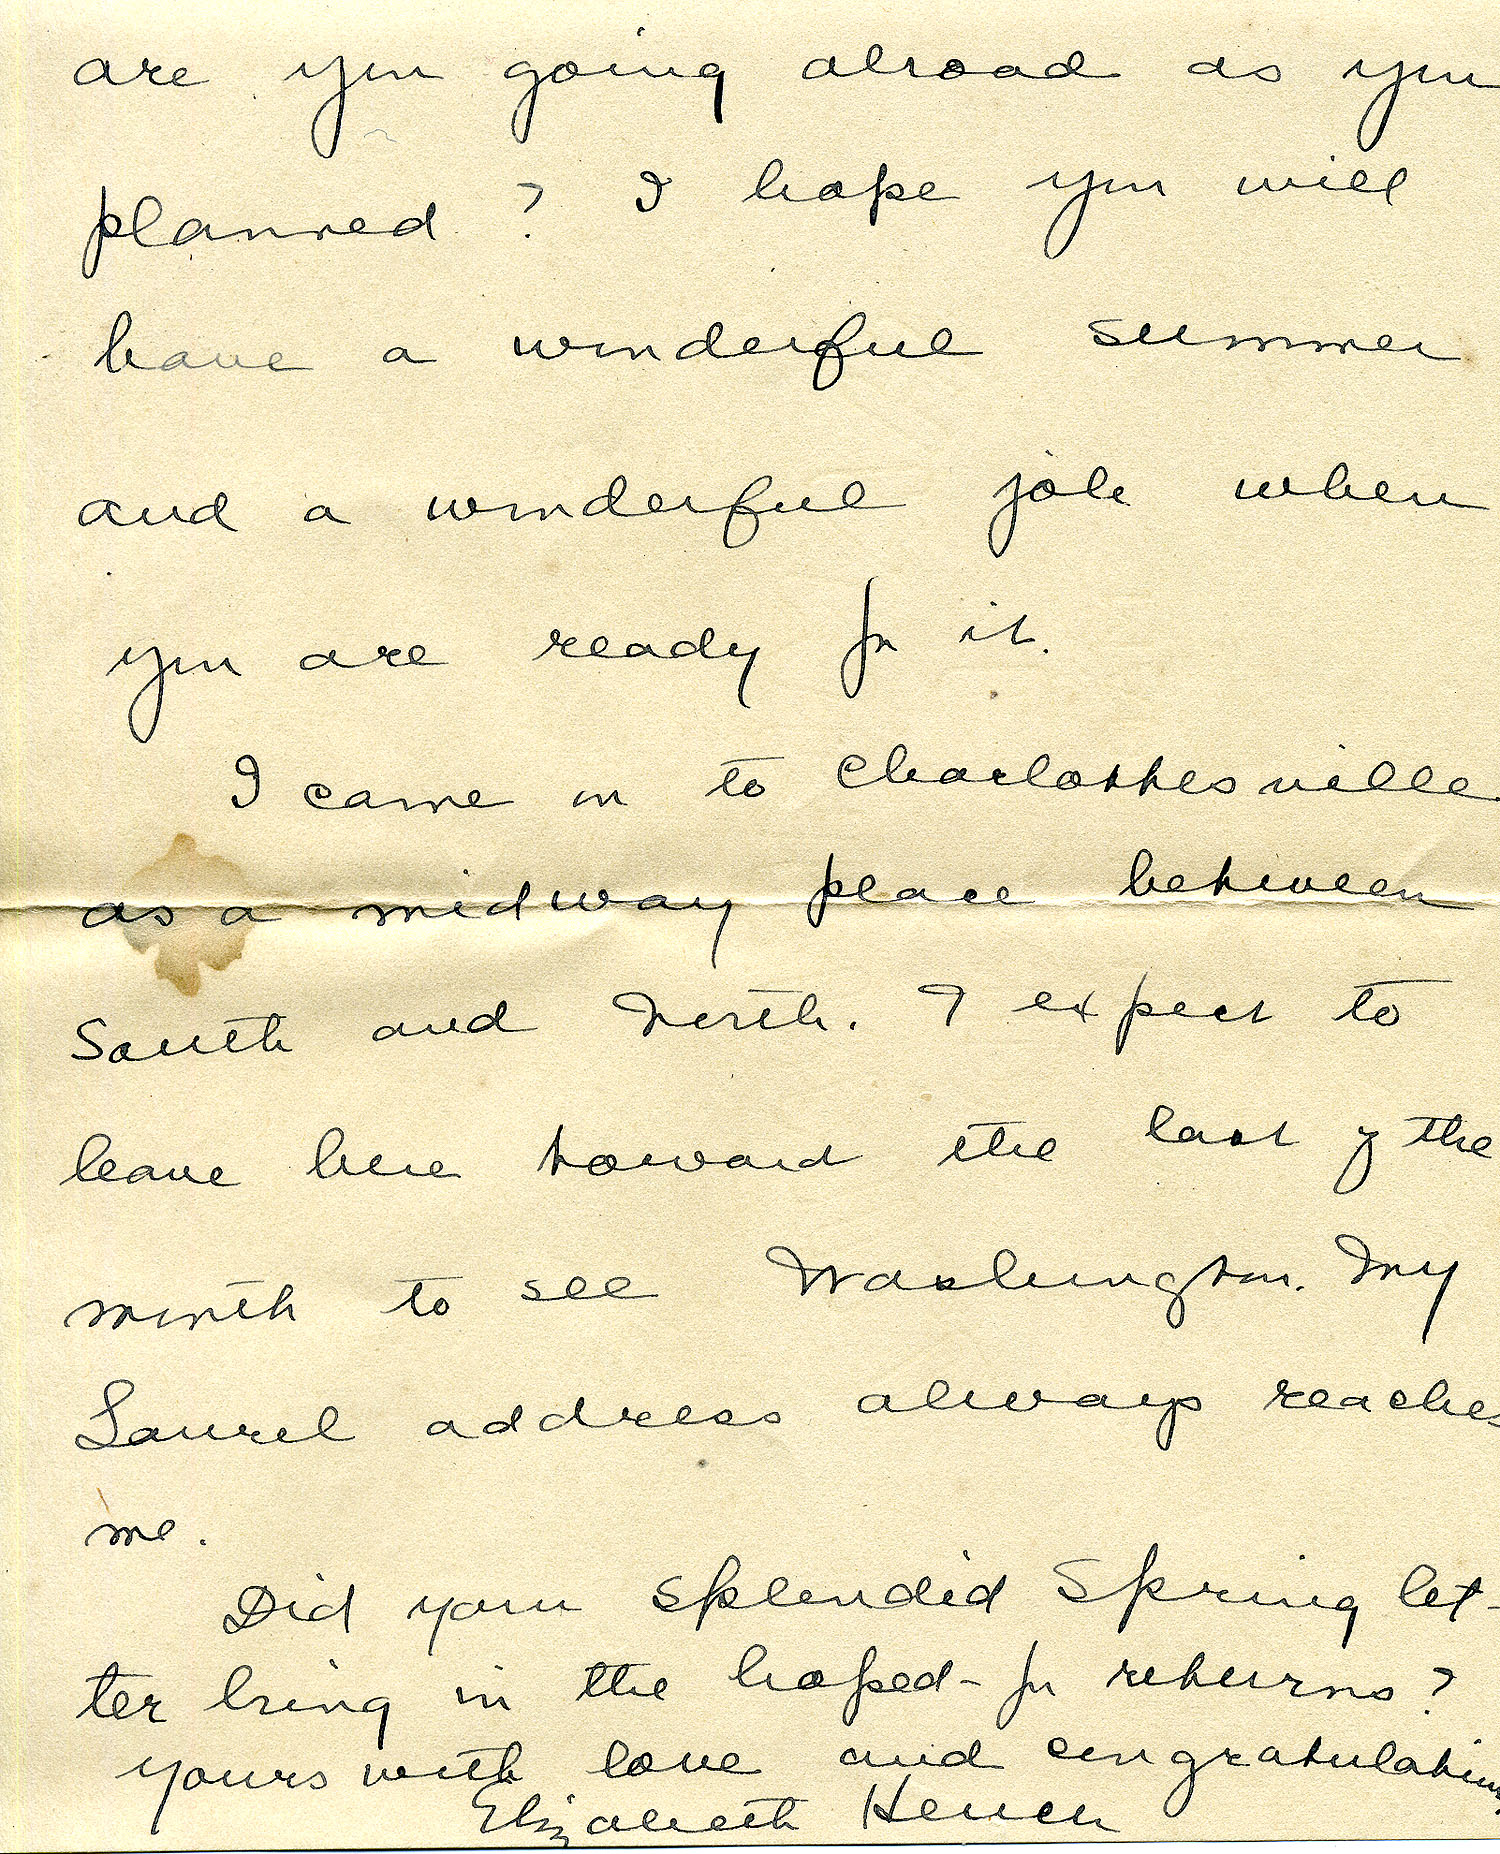 are you going abroad as you
planned? I hope you will
have a wonderful summer
and a wonderful job when
you are ready for it.
I came on to Charlottesville
as a midway place between
South and North. I expect to
leave here toward the last of the
month to see Washington. My
Laurel address always reaches
me.
Did your splendid Spring let-
ter bring in the hoped-for returns?
Yours with love and congratulations,
Elizabeth Hench